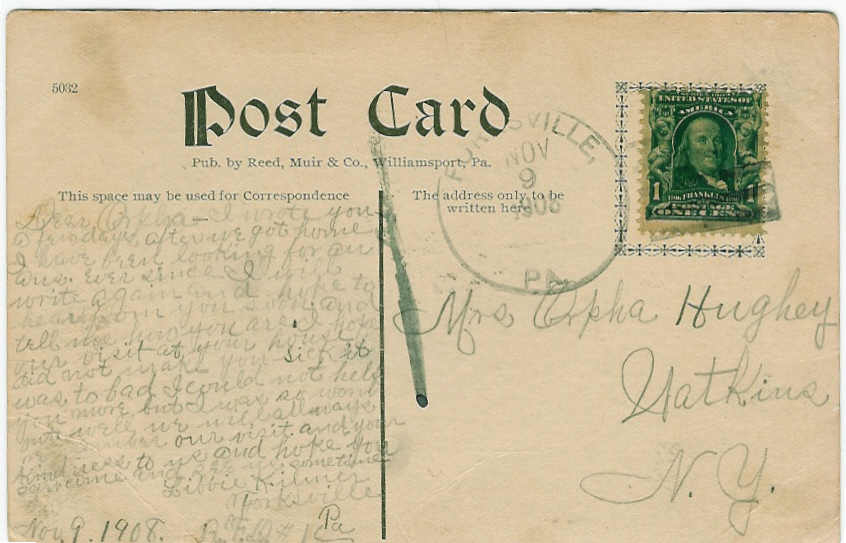 5032
Post Card
Pub. by Reed, Muir & Co., Williamsport, Pa.
This space may be used for Correspondence
The address only to be
written here
FORKSVILLE,
NOV
9
1908
PA.
UNITED STATES OF
AMERICA
1 FRANKLIN
POSTAGE
ONE CENT
Dear Orpha - I wrote you
a few days after we got home
I have been looking for an
ans. ever since I will
write again and hope to
hear from you soon and
tell me how you are I hope
our visit at your house
did not make you sick it
was to bad I could not help
you more but I was so
well we will allways
remember our visit and your
kindness to us and hope you
can come and see us sometime
Libbie Kilmer
Forksville
Pa
Nov. 9. 1908.
Mrs Orpha Hughey
Watkins
N. Y.